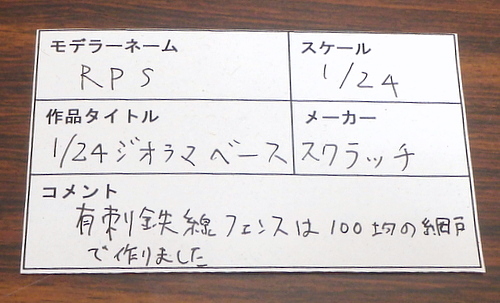 モデラーネーム スケール
RPS 1/24
作品タイトル メーカー
1/24ジオラマベース スクラッチ
コメント
有刺鉄線フェンスは100均の網戸
で作りました